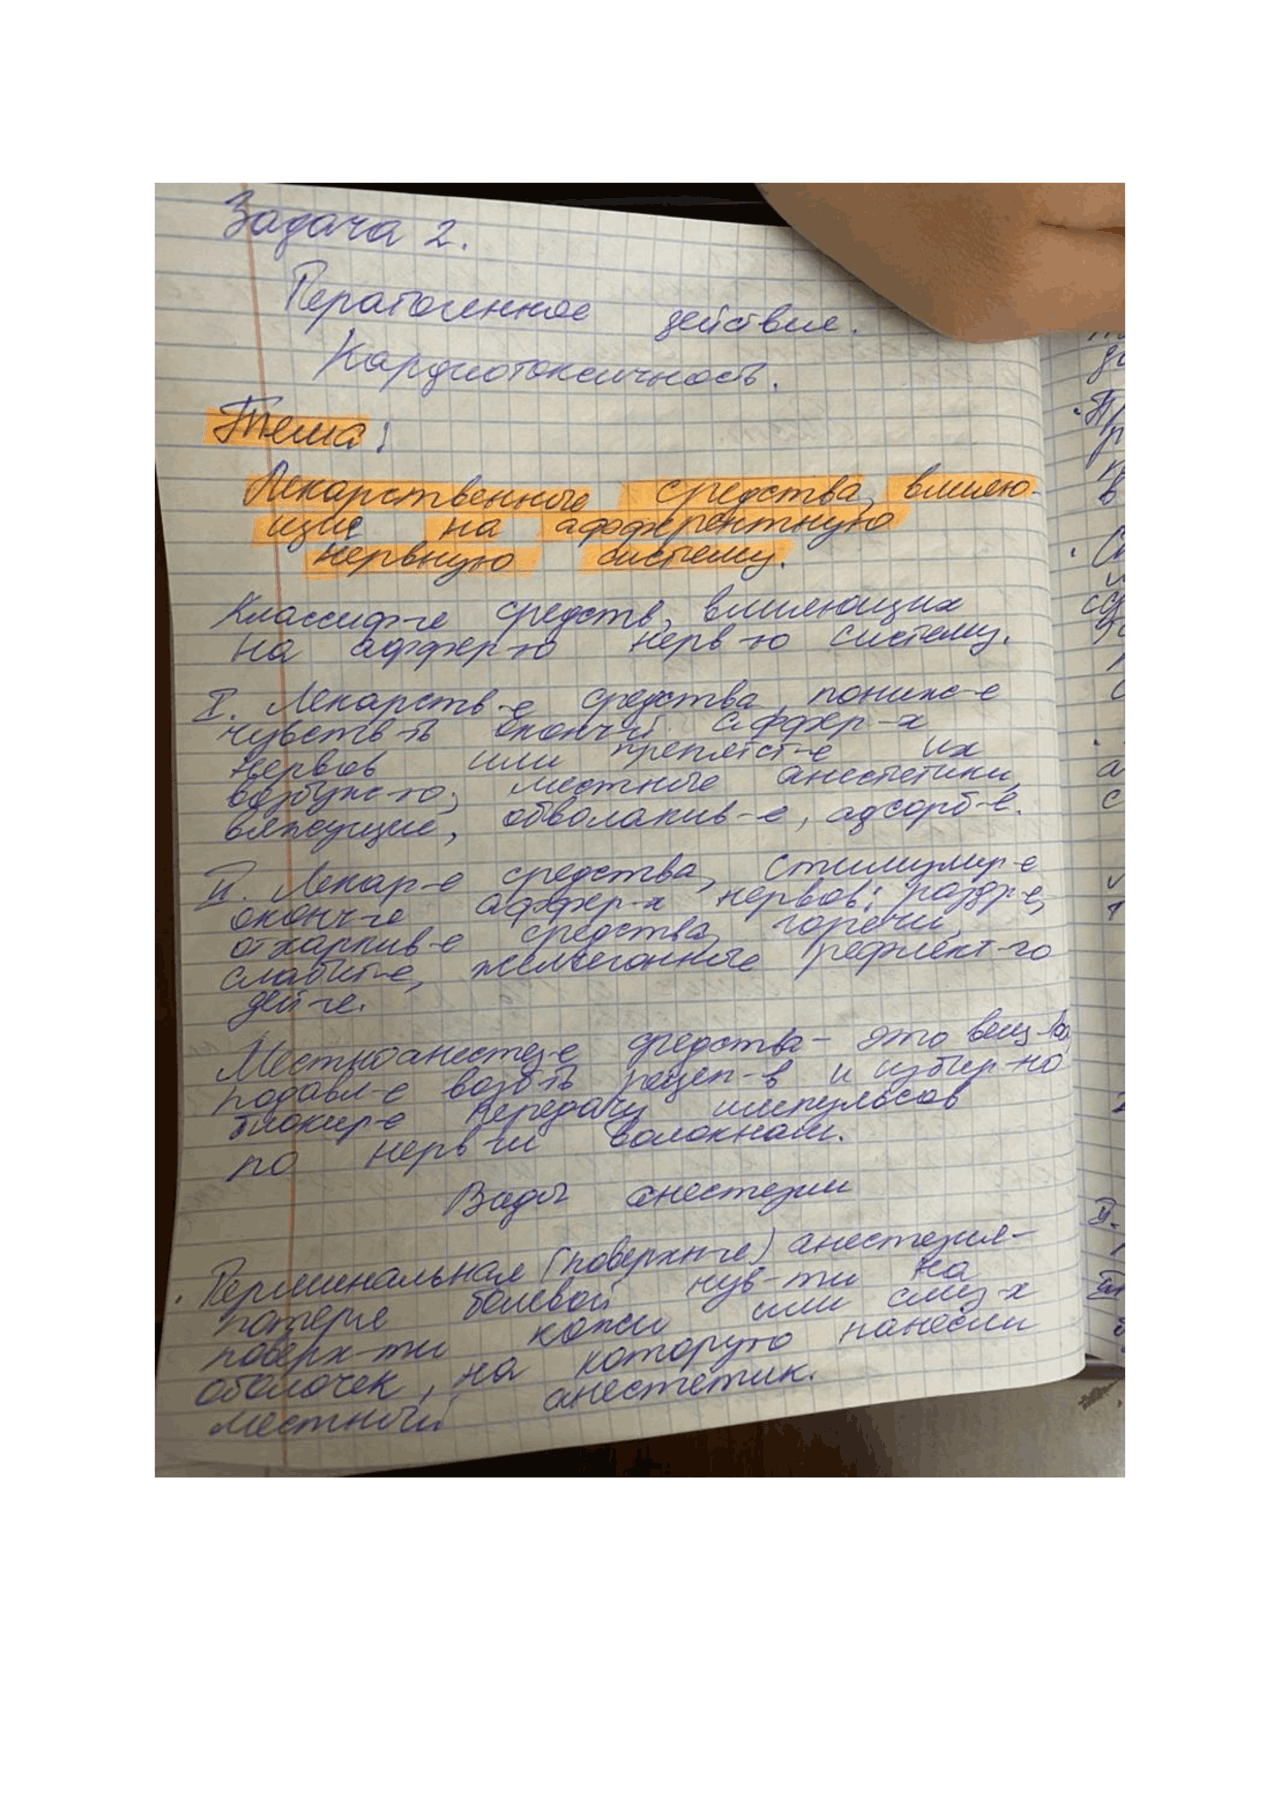 Задача 2.
Тератогенное действие.
Кардиотоксичность.
Тема:
Лекарственные средства, влияю-
щие на афферентную
нервную систему.
Классиф-е средств, влияющих
на аффер-ю нерв-ю систему.
I. Лекарств-е средства, пониж-е
чувств-ть оконч-й аффер-х
нервов или препятст-е их
возбужд-ю; местные анестетики,
вяжущие, обволакив-е, адсорб-е.
II. Лекар-е средства, стимулир-е
оконч-е аффер-х нервов: раздр-е,
отхаркив-е средства, горечи,
слабит-е, желчегонные рефлект-го
дей-е.
Местноанестез-е средства - это вещ-ва,
подавл-е возб-ть рецеп-в и избир-но
блокир-е передачу импульсов
по нерв-м волокнам.
Виды анестезии
. Терминальная (поверхн-е) анестезия-
потеря болевой чув-ти на
поверх-ти кожи или слиз-х
оболочек, на которую нанесли
местный анестетик.